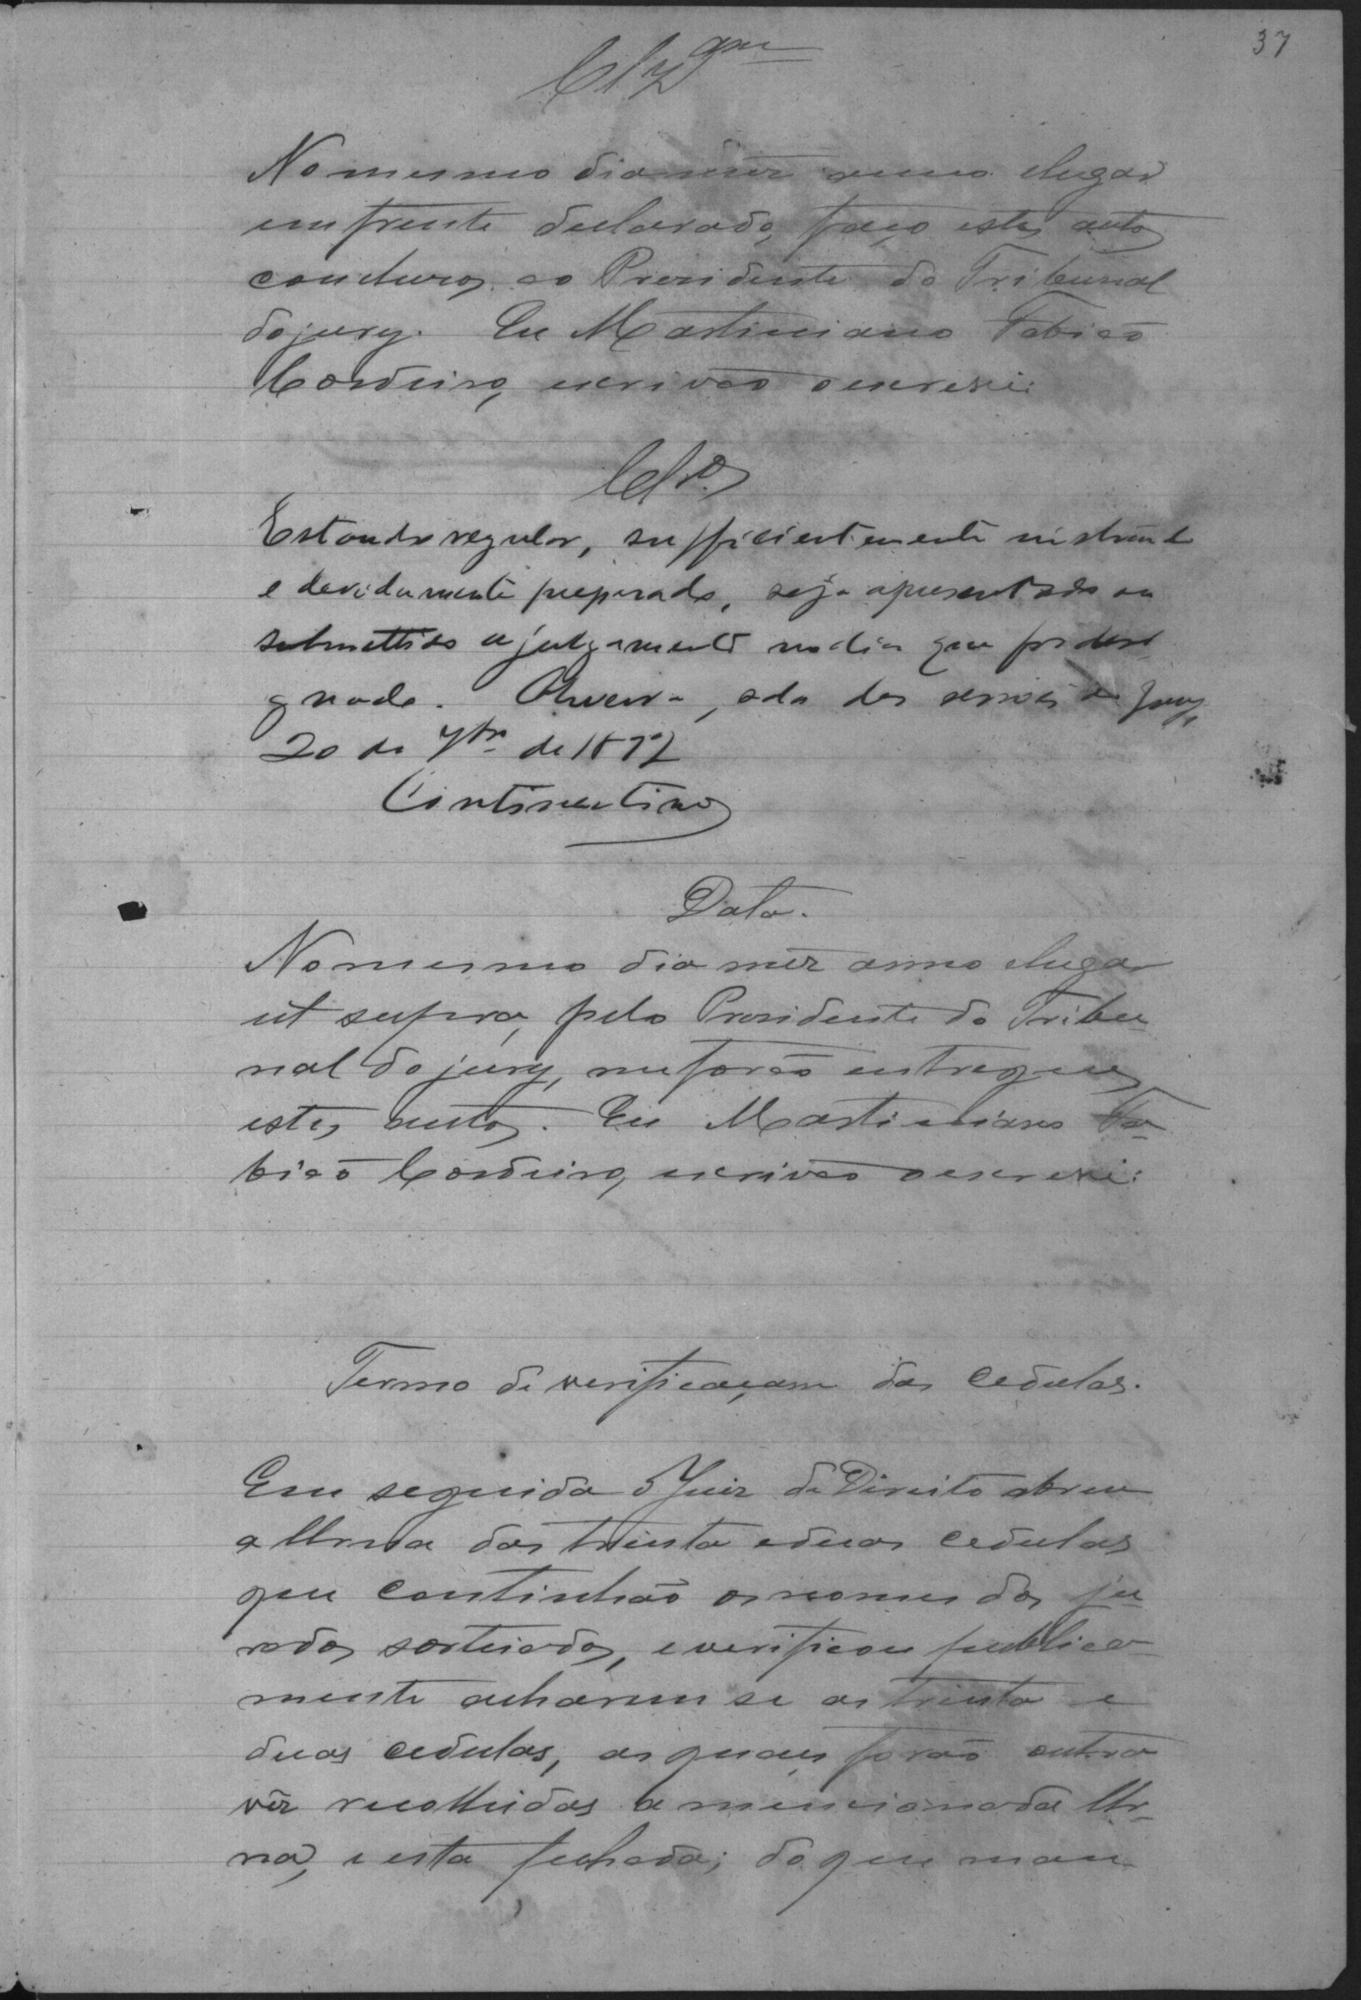 37
Clzam
No mesmo dia mez anno e lugar
em frente declarado, faço estes autos
concluzos ao Presidente do Tribunal
do jury. Eu Martiniano Fabião
Cordeiro, escrivão o escrevi:
Clos
Estando regular, sufficientemente instruido
e devidamente preparado, seja apresentado ou
submettido a julgamento no dia que for desi
gnado. Oliveira, sala das sessões do Jury,
20 de 7bro de 1872
Continentino
Data.
No mesmo dia mez anno e lugar
ut supra, pelo Presidente do Tribu-
nal do jury, me forão entregues
estes autos. Eu Martiniano Fa-
bião Cordeiro, escrivão o escrevi:
Termo de verificaçam das cedulas.
Em seguida o Juiz de Direito abreu
a Urna das trinta e duas cedulas
que continhão os nomes dos ju-
rados sorteados, e verificou publica-
mente acharem se as trinta e
duas cedulas, as quaes forão outra
vêz recolhidas a mencionada Ur-
na, e esta fechada; do que man-